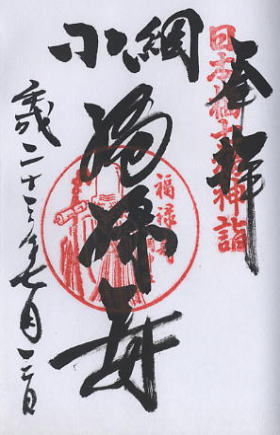 奉拝
日本橋七福神詣
小網
福禄寿
福禄寿
平成二十三年七月三日